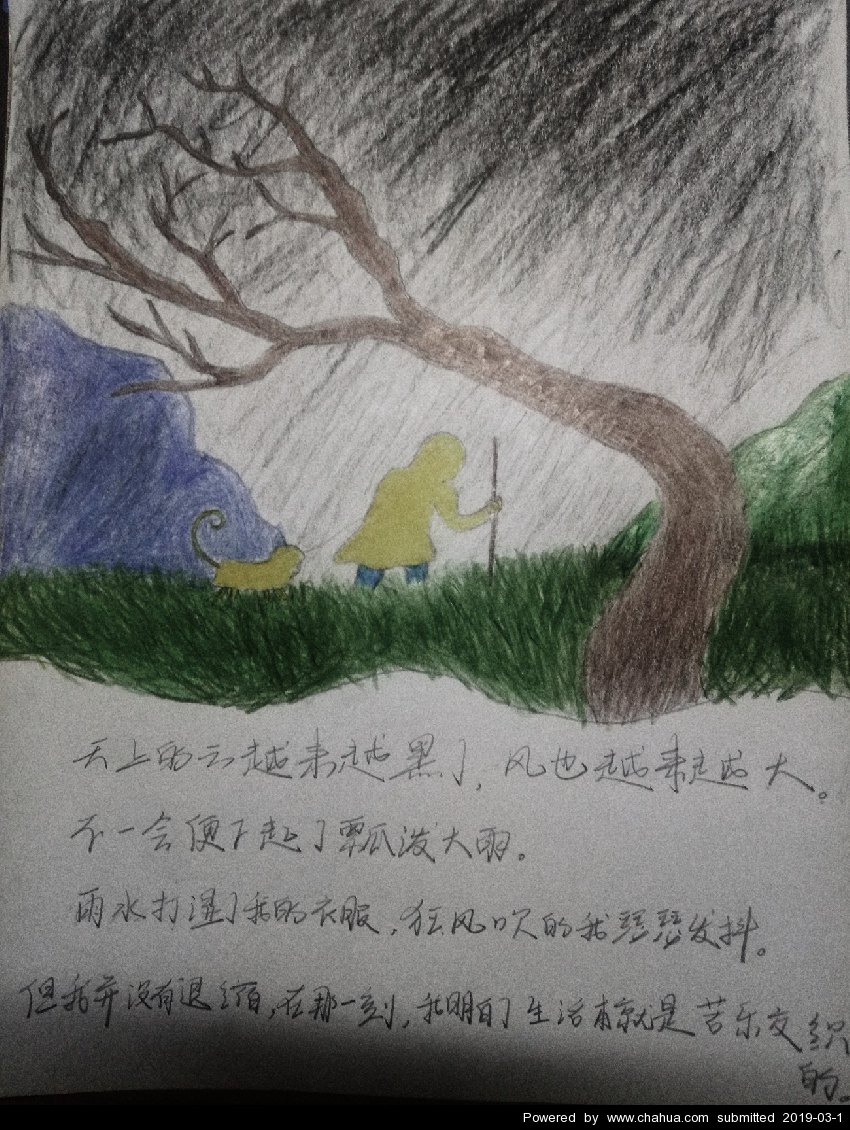 天上的云越来越黑了，风也越来越大。
不一会便下起了瓢泼大雨。
雨水打湿了我的衣服，狂风吹的我瑟瑟发抖。
但我并没有退缩，在那一刻，我明白了生活本就是苦乐交织
的。
Powered by www.chahua.com submitted 2019-03-1